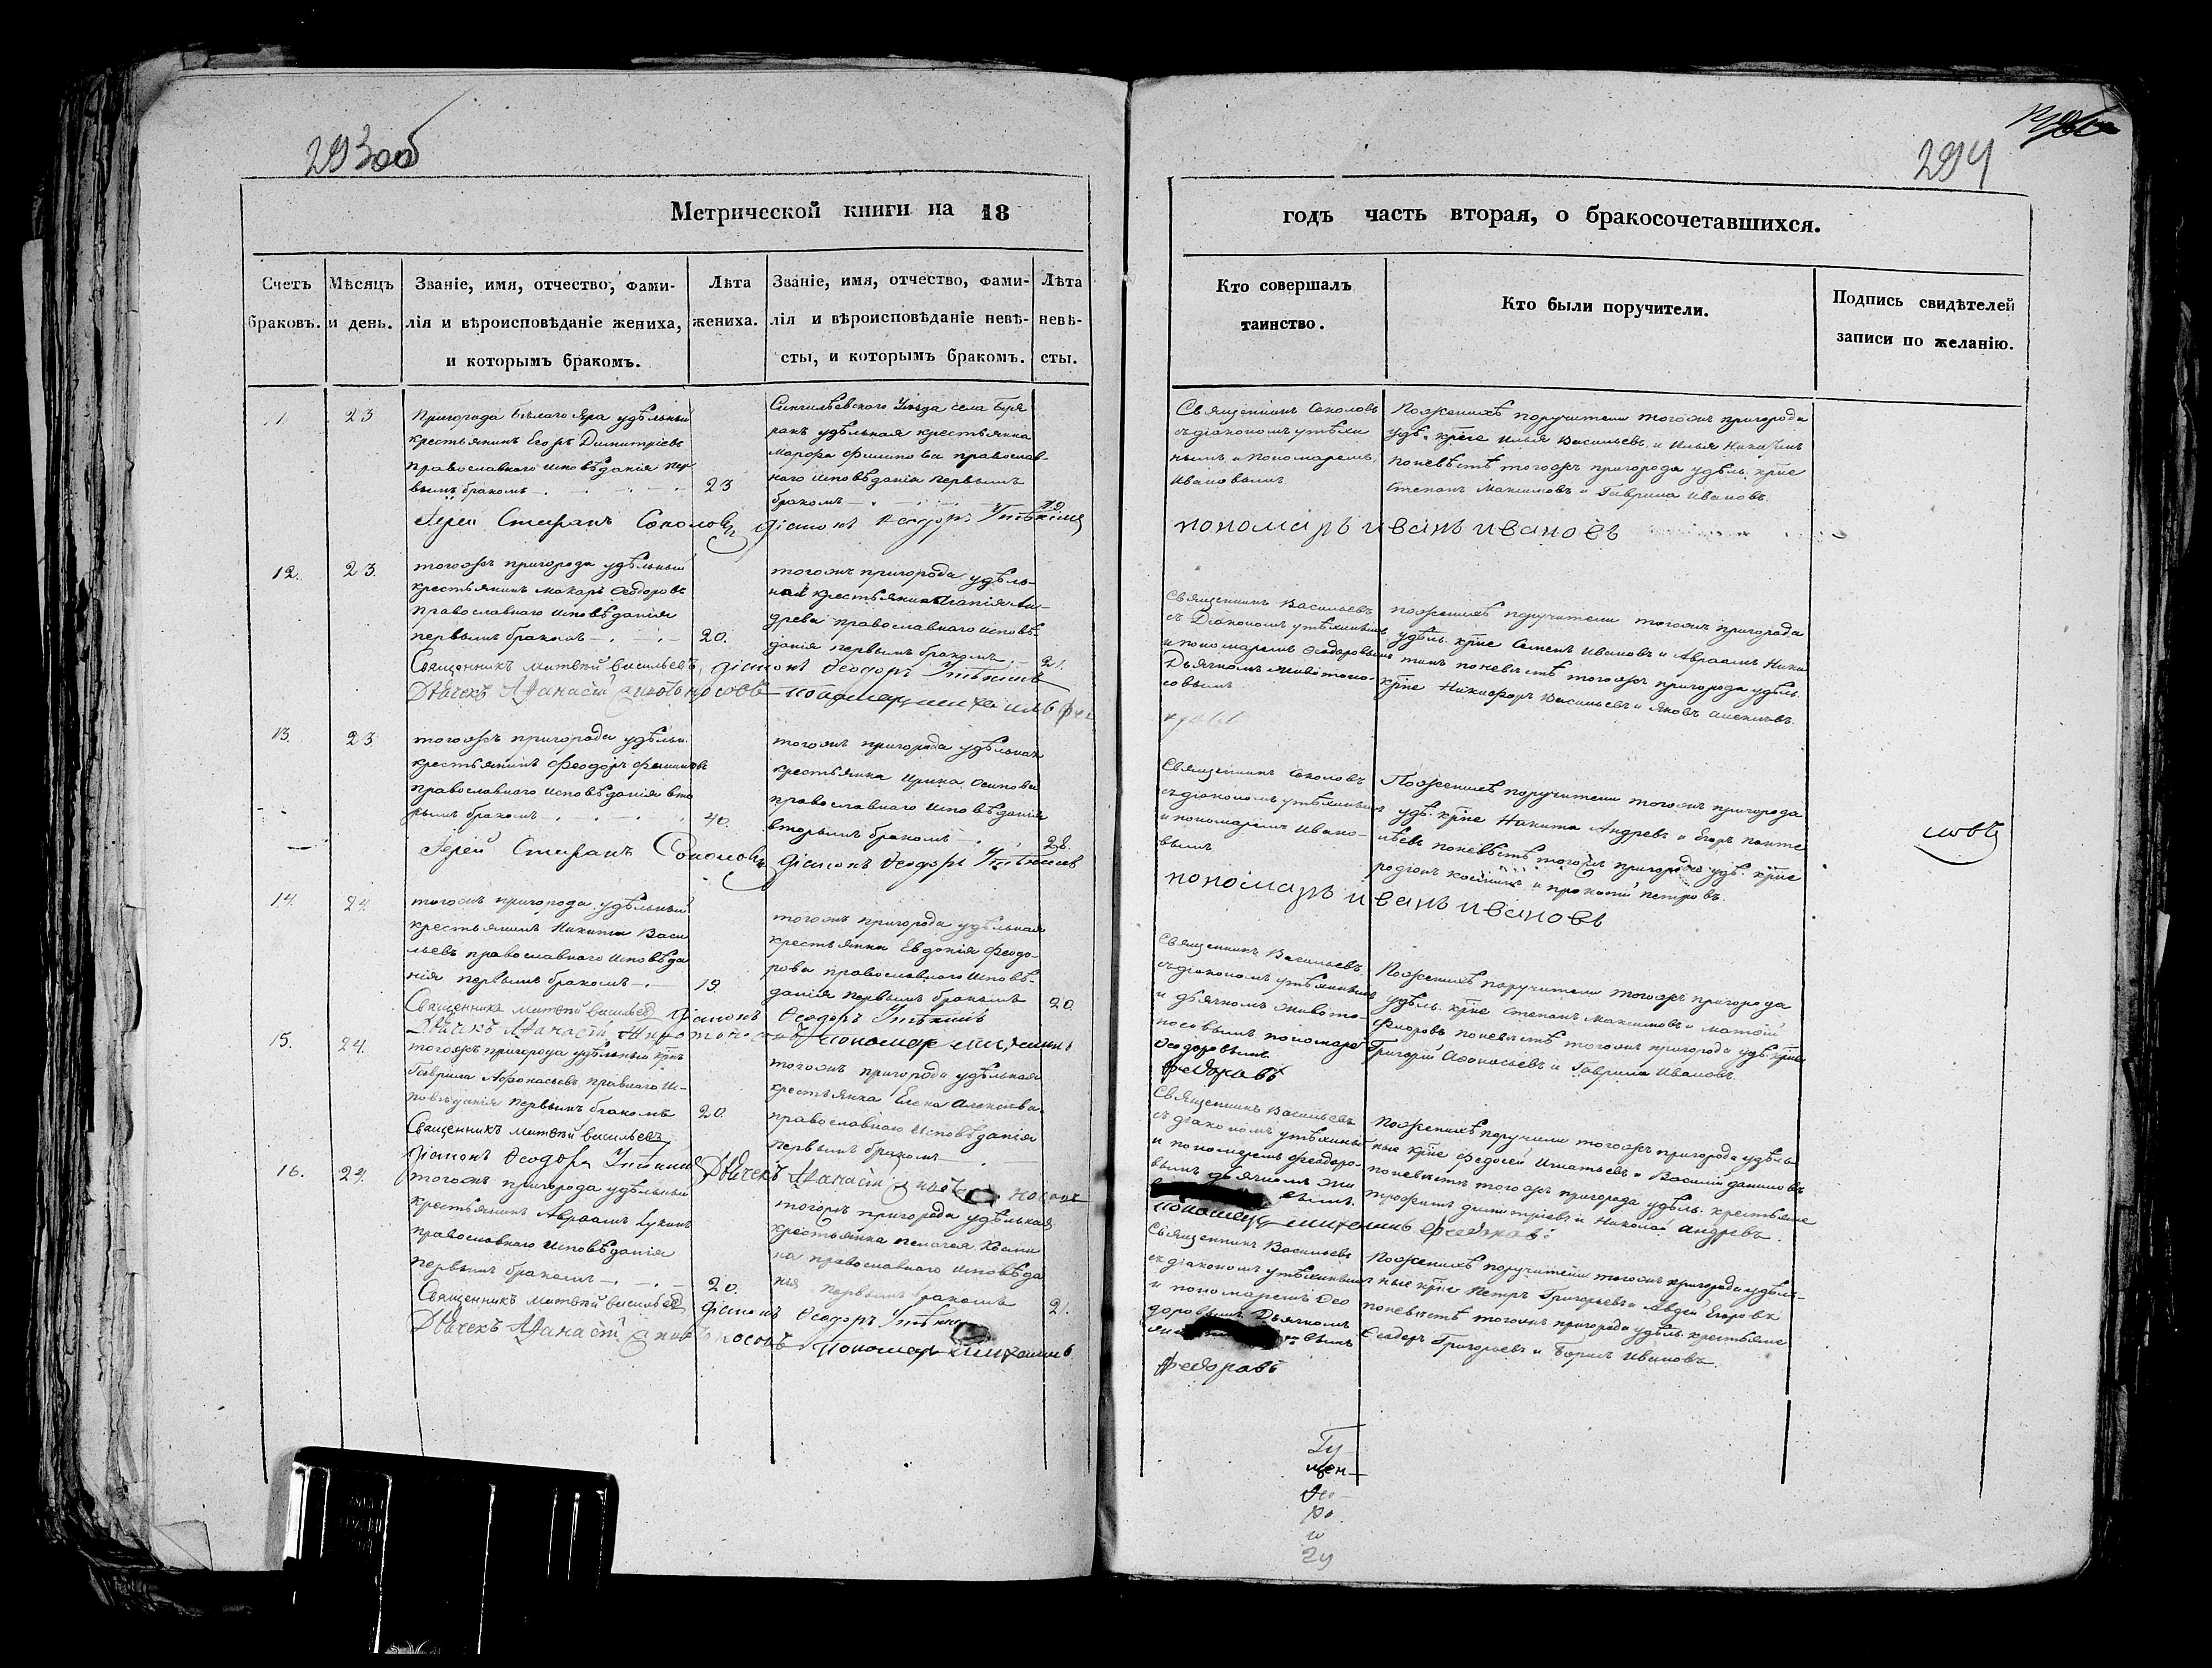 293об
294
Метрической книги на 18
годъ часть вторая, о бракосочетавшихся.
Счетъ браковъ.
Мѣсяцъ и день.
Званіе, имя, отчество, фами-
лія и вѣроисповѣданіе жениха,
и которымъ бракомъ.
Лѣта
жениха.
Званіе, имя, отчество, фами-
лія и вѣроисповѣданіе невѣ-
сты, и которымъ бракомъ.
Лѣта
невѣ-
сты.
Кто совершалъ
таинство.
Кто были поручители.
Подпись свидѣтелей
записи по желанію.
11
23
Пригорода Бѣлаго Яра удѣльный
крестьянинъ Егоръ Димитріевъ
православнаго исповѣданія пер
вымъ бракомъ
23
Сингилѣевскаго Уѣзда села
удѣльная крестьянка
Марфа Филипова православ-
наго исповѣданія первымъ
бракомъ
19
Священникъ Соколовъ
съ діакономъ утѣхи
нымъ и Пономаремъ
Ивановымъ
По женихѣ поручители тогожъ пригорода
удѣ. кр̃не Илья Васильевъ и Илья Никитинъ
по невѣстѣ тогожъ пригорода удѣль. кр̃не
Степанъ Максимовъ и Гаврила Ивановъ.
Іерей Стефанъ Соколовъ діаконъ Ѳеодоръ Утѣхинъ
пономарь иванъ ивановъ
12.
23.
тогожъ пригорода удѣльный
крестьянинъ Макаръ Ѳеодоровъ
православнаго исповѣданія
первымъ бракомъ
20.
тогожъ пригорода удѣль-
ная крестьянка Ан-
древа православнаго исповѣ-
данія первымъ бракомъ
21.
Священникъ Васильевъ
съ Діакономъ утѣхинымъ
и пономаремъ Ѳеодоровымъ
Дьячкомъ Животоно-
совымъ
по женихѣ поручители тогожъ пригорода
удѣль. кр̃не Семенъ Ивановъ и Авраамъ Ники
тинъ по невѣстѣ тогожъ пригорода удѣль.
кр̃не Никифоръ Васильевъ и Яковъ
Священникъ матѳей васильевъ, діаконъ Ѳеодоръ Утѣхинъ
Дьячекъ Аѳанасій Животоносовъ пономарь михаилъ
13.
23.
тогожъ пригорода удѣльн.
крестьянинъ Феодоръ Филиповъ
православнаго исповѣданія вто
рымъ бракомъ
40.
тогожъ пригорода удѣльная
крестьянка Ирина Осипова
православнаго исповѣданія
вторымъ бракомъ
28.
Священникъ Соколовъ
съ діакономъ утѣхинымъ
и пономаремъ Ивано-
вымъ
По женихѣ поручители тогожъ пригорода
удѣ. кр̃не Никита Андревъ и Егоръ Панте
лѣевъ по невѣстѣ тогожъ пригорода удѣ. кр̃не
родіонъ и прокопій петровъ.
Іерей Стефанъ Соколовъ діаконъ Ѳеодоръ Утѣхинъ
пономарь иванъ ивановъ
14.
24.
тогожъ пригорода удѣльный
крестьянинъ Никита Васи
льевъ православнаго исповѣда
нія первымъ бракомъ
19.
тогожъ пригорода удѣльная
крестьянка Евдокія Феодо-
рова православнаго исповѣ-
данія первымъ бракомъ
20.
Священникъ Васильевъ
съ діакономъ утѣхинымъ
и дьячкомъ живото-
носовымъ пономаре
Ѳеодоровымъ
По женихѣ поручители тогожъ пригорода
удѣль. кр̃не Степанъ Максимовъ и матвѣй
по невѣстѣ тогожъ пригорода удѣ. кр̃не
Григорій Афонасьевъ и Гаврила Ивановъ.
Священникъ матѳей васильевъ діаконъ Ѳеодоръ Утѣхинъ
Дьячекъ Аѳанасій Животоносовъ пономарь михаилъ
федоровъ
15.
24.
тогожъ пригорода удѣльный кр̃нъ
Гаврила Афонасьевъ правнаго ис-
повѣданія первымъ бракомъ
20.
тогожъ пригорода удѣльная
крестьянка Елена Алексѣева
православнаго исповѣданія
первымъ бракомъ
Священникъ Васильевъ
съ діакономъ утѣхинымъ
и пономаремъ Феодоро-
вымъ дьячкомъ жи
вымъ
По женихѣ поручители тогожъ пригорода удѣль-
ные кр̃не Федосей Игнатьевъ и Василій даниловъ
по невѣстѣ тогожъ пригорода удѣль. крестьяне
трофимъ димитріевъ и Николай андревъ.
Священникъ матѳей васильевъ
діаконъ Ѳеодоръ Утѣхинъ Дьячекъ Аѳанасій
пономарь михаилъ федоровъ
16.
24.
тогожъ пригорода удѣльный
крестьянинъ Авраамъ Лукинъ
православнаго исповѣданія
первымъ бракомъ
20.
тогожъ пригорода удѣльная
крестьянка пелагея
на православнаго исповѣда
нія первымъ бракомъ
21.
Священникъ Васильевъ
съ діакономъ утѣхинымъ
и пономаремъ Ѳео
доровымъ Дьячкомъ
вымъ
По женихѣ поручители тогожъ пригорода удѣль-
ные кр̃не Петръ Григорьевъ и Авдей Егоровъ
по невѣстѣ тогожъ пригорода удѣль. крестьяне
Ѳеодоръ Григорьевъ и Борисъ Ивановъ.
Священникъ матѳей васильевъ діаконъ Ѳеодоръ Утѣхинъ
Дьячекъ Аѳанасій Животоносовъ пономарь михаилъ
федоровъ